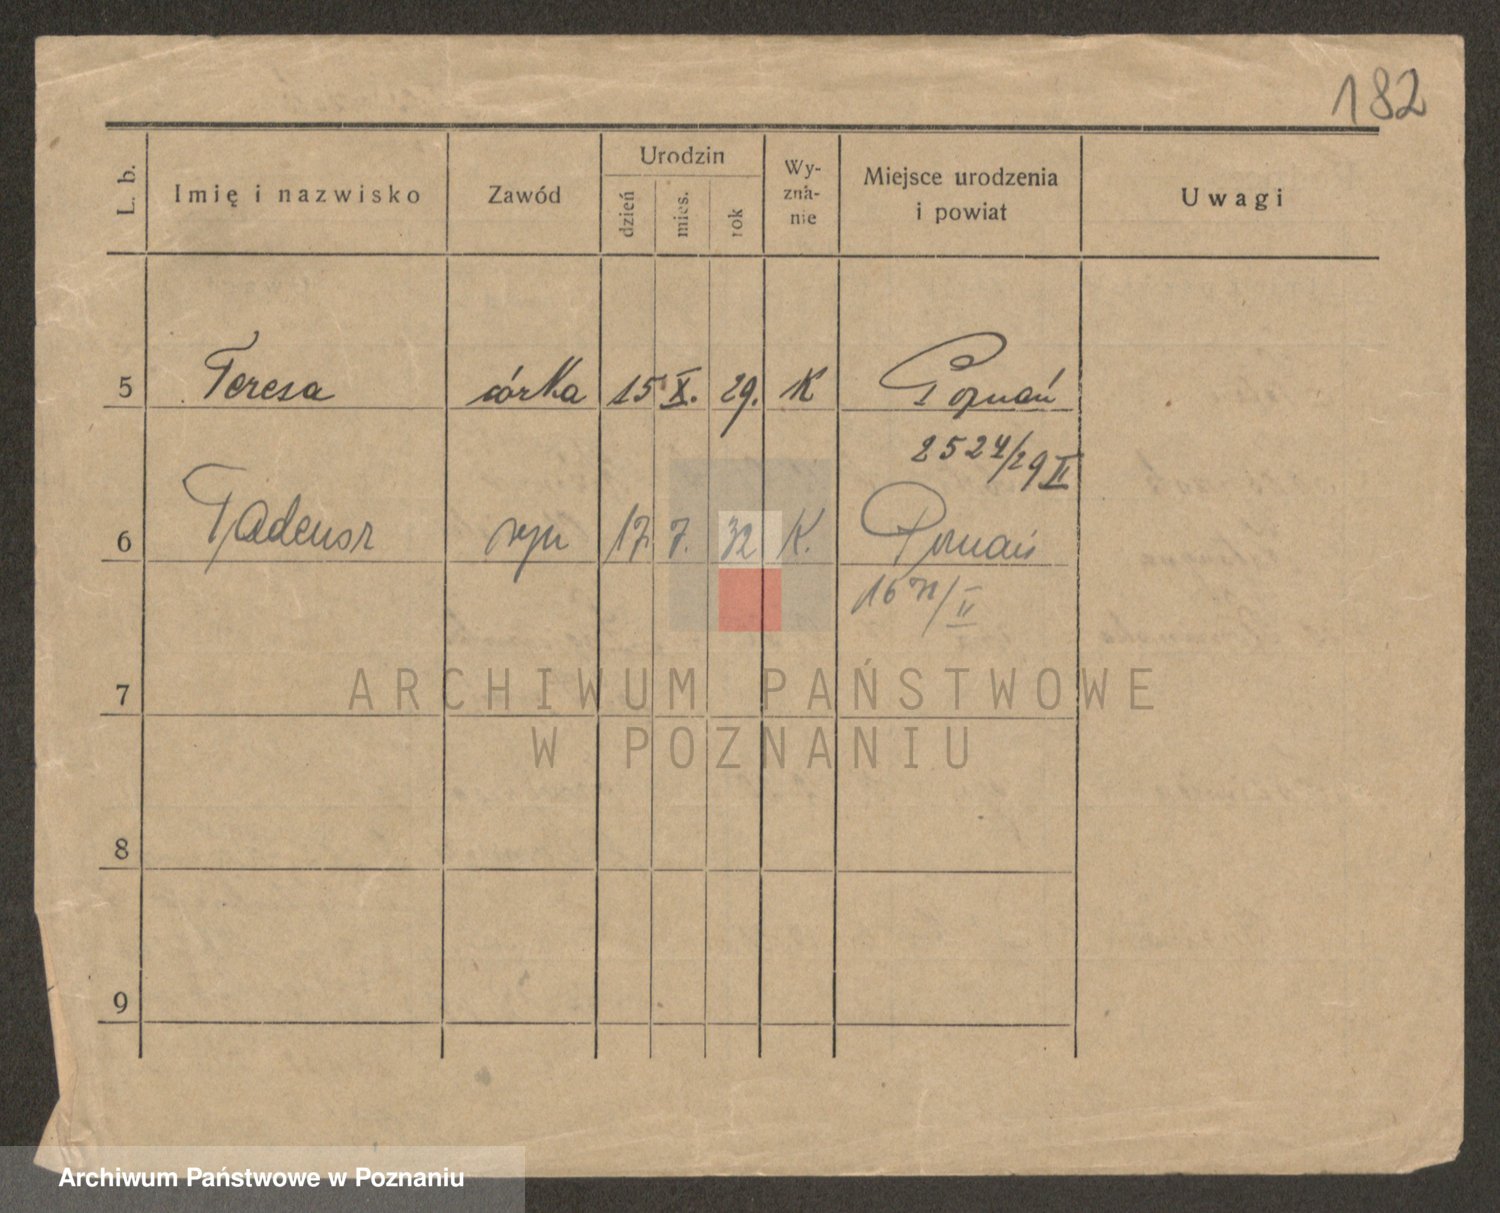 182
L. b. Imię i nazwisko Zawód Urodzin dzień mies. rok Wy-zna-nie Miejsce urodzenia i powiat Uwagi
5 Teresa córka 15 X. 29. K Poznań
2524/29 II
6 Tadeusz syn 17. 7. 32 K. Poznań
16 /II
7
8
9
ARCHIWUM PAŃSTWOWE
W POZNANIU
Archiwum Państwowe w Poznaniu